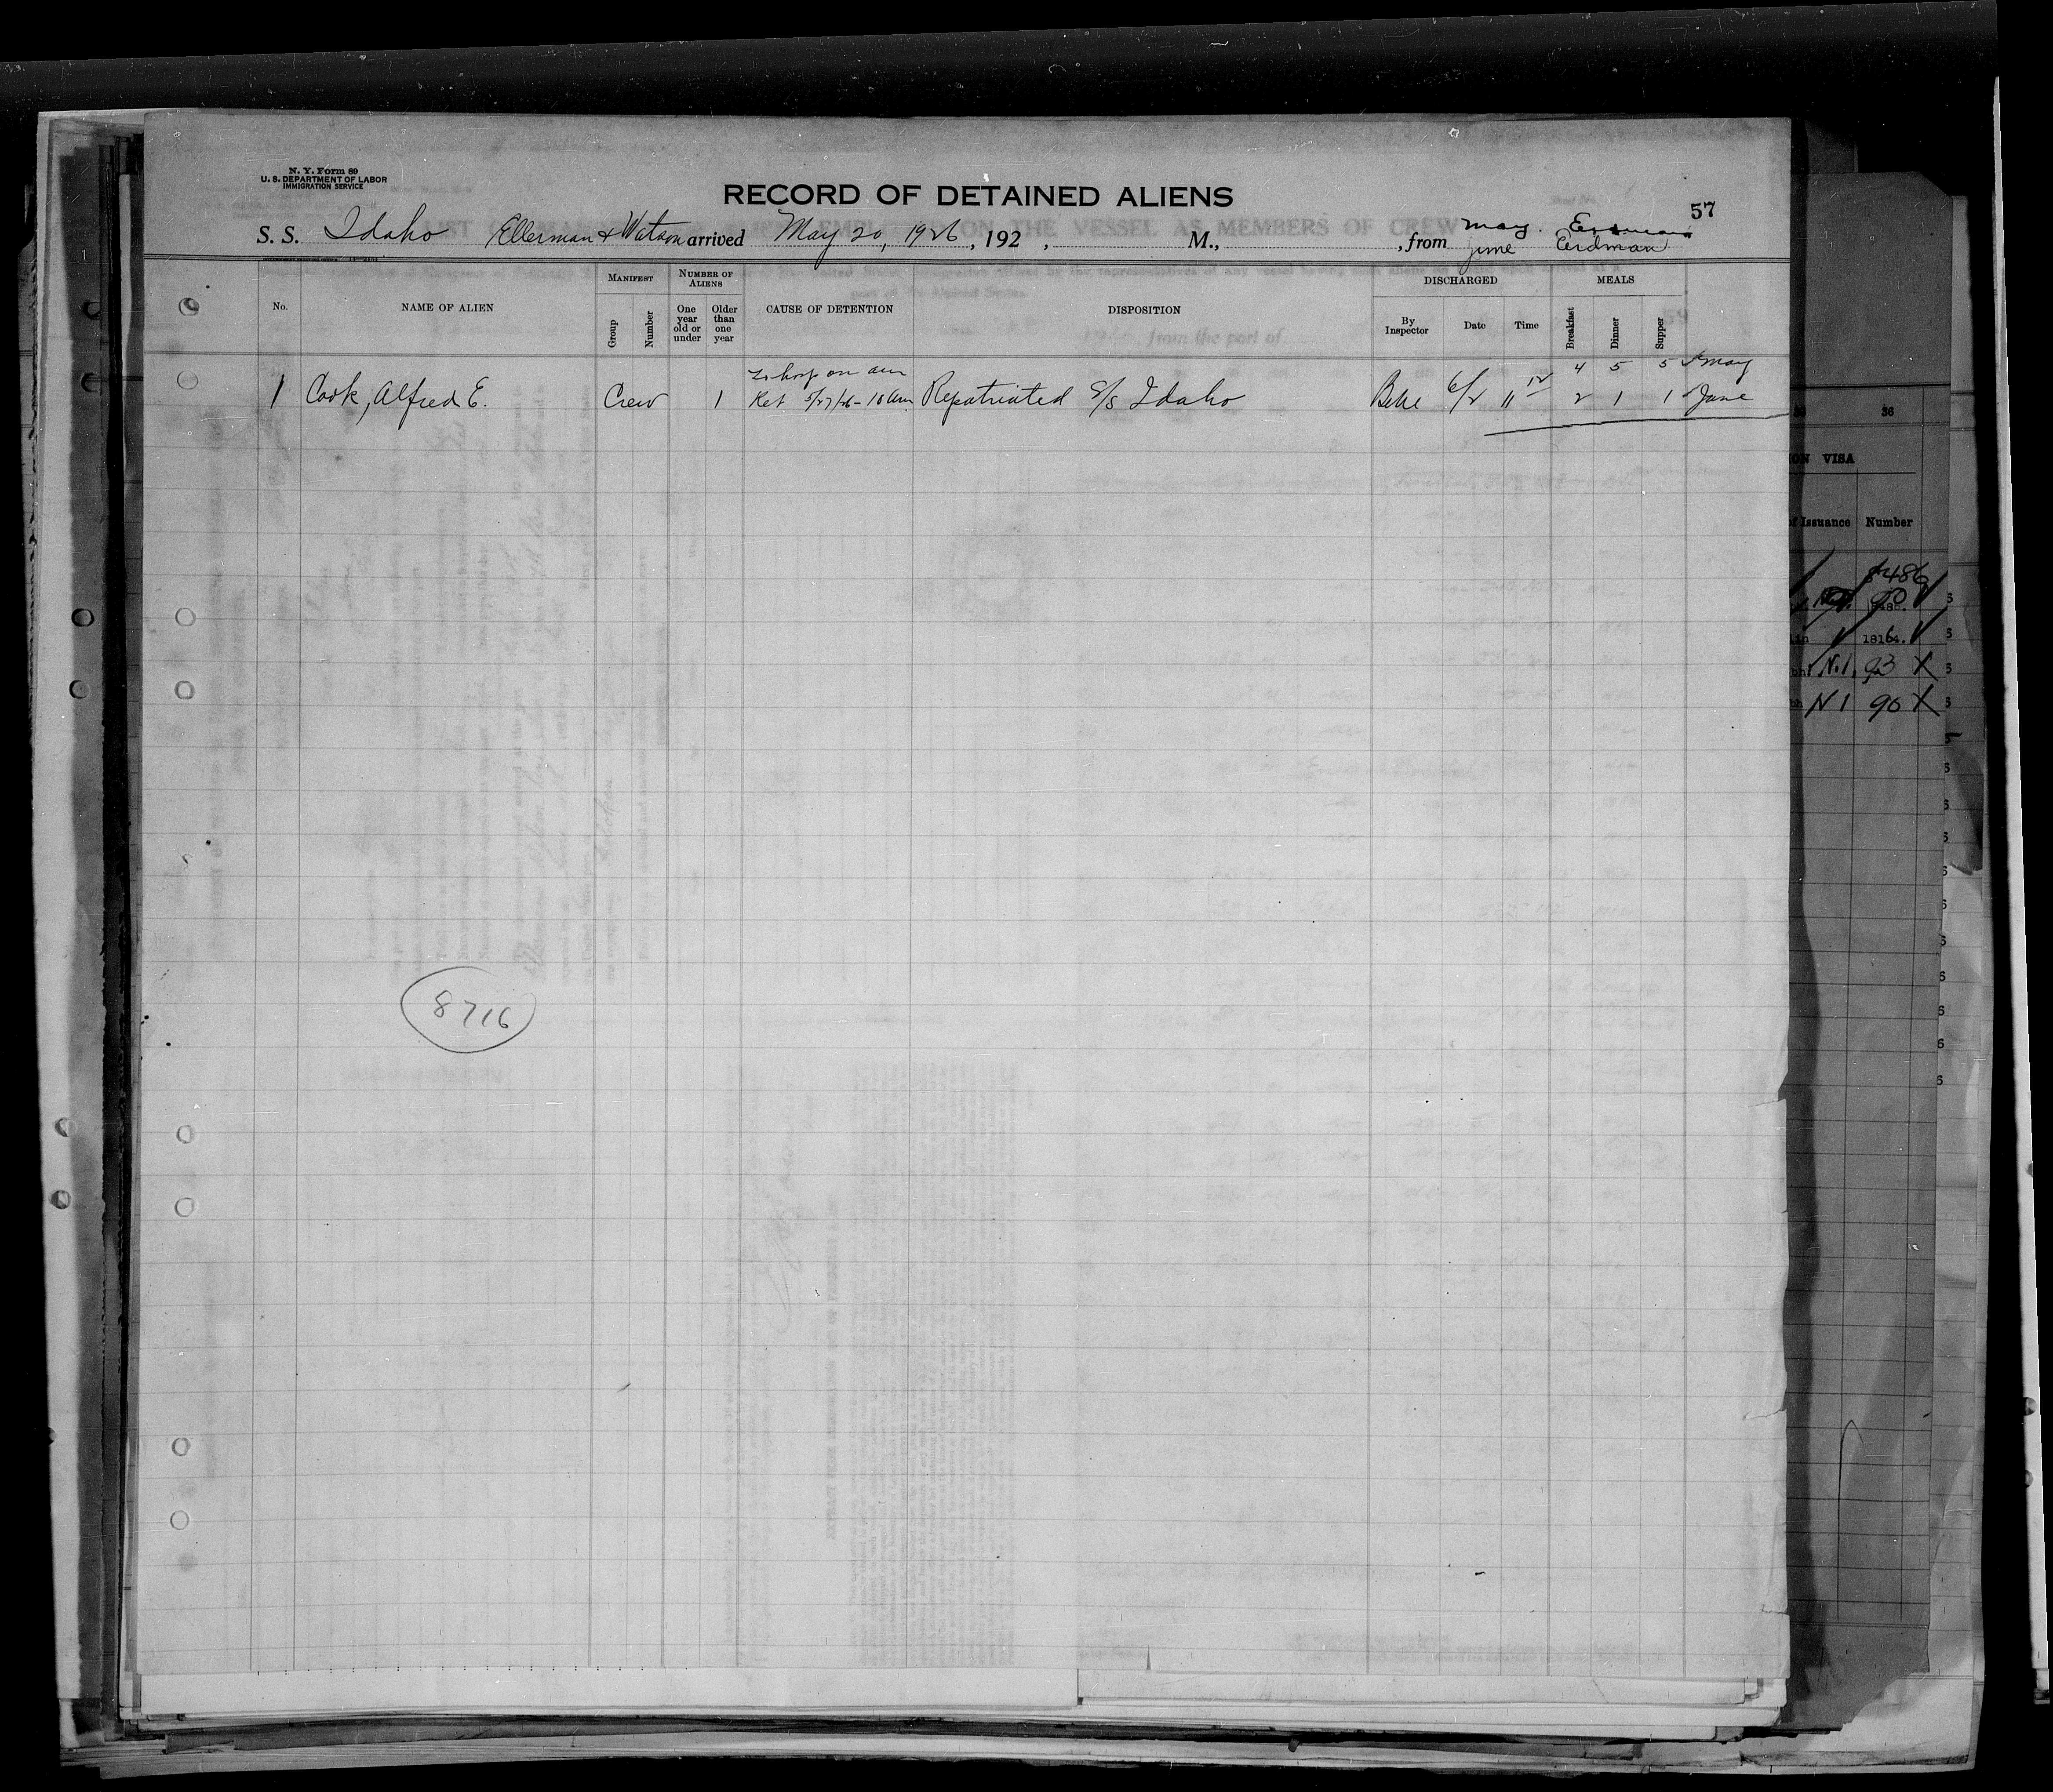 N. Y. Form 89
U. S. DEPARTMENT OF LABOR
IMMIGRATION SERVICE
RECORD OF DETAINED ALIENS
57
S. S. Idaho Ellerman & Watson arrived May 20, 1926, 192 , M., , from May. Erdman
June Erdman
No.
NAME OF ALIEN
MANIFEST
Group
Number
NUMBER OF ALIENS
One year old or under
Older than one year
CAUSE OF DETENTION
DISPOSITION
DISCHARGED
By Inspector
Date
Time
MEALS
Breakfast
Dinner
Supper
To hosp on arr 4 5 5 May
1 Cook, Alfred E. Crew 1 Ret 5/27/26 - 10 am Repatriated S/S Idaho 6/2 11 2 1 1 June
8716
36
ION VISA
of Issuance Number
8486
18164.
N.1. 93 X
N 1 90 X